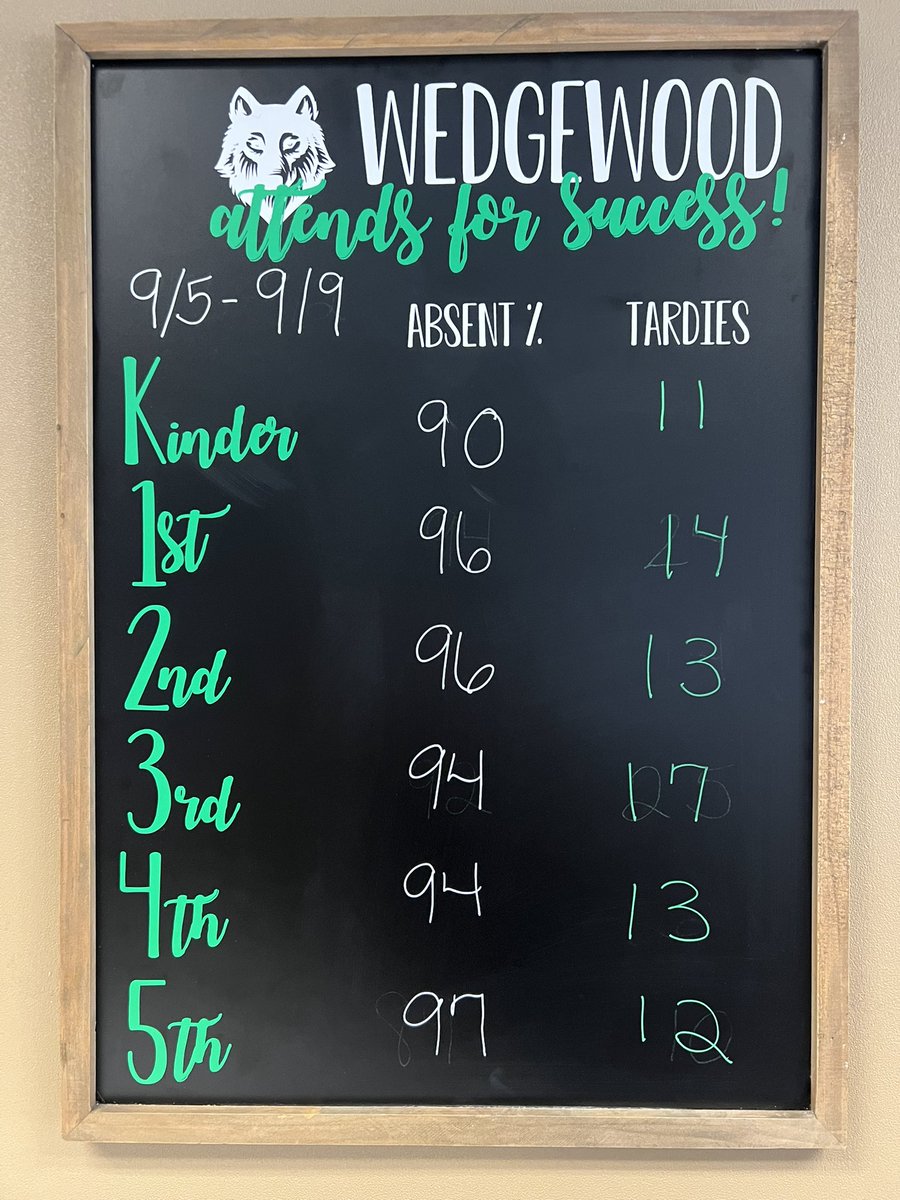 WEDGEWOOD
attends for success!
9/5-9/9 ABSENT % TARDIES
Kinder 90 11
1st 96 14
2nd 96 13
3rd 94 17
4th 94 13
5th 97 12